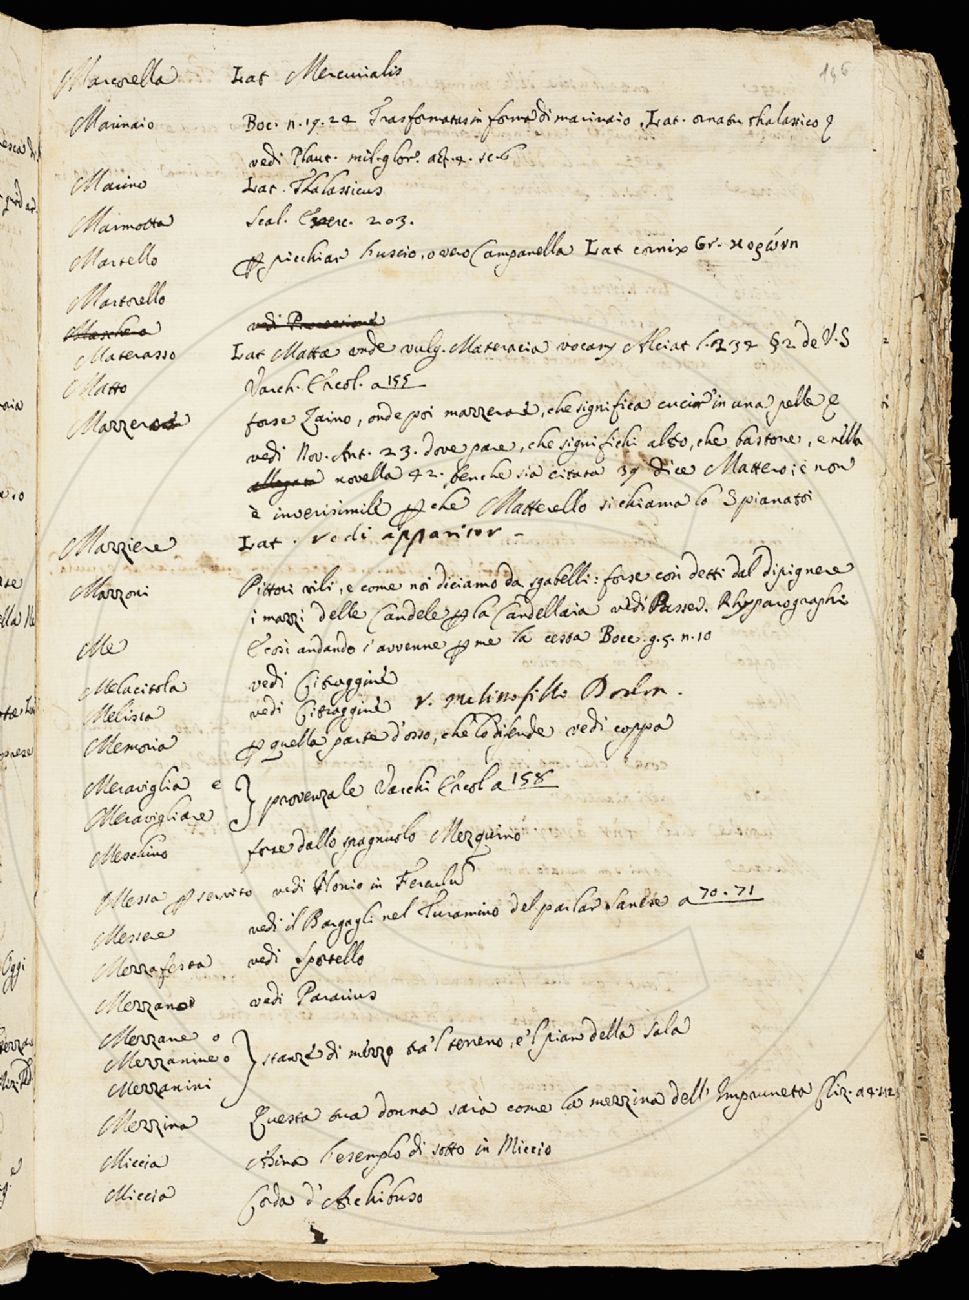 196
Marcorella Lat Mercurialis
Marinaio Boc. n. 19. 24 Trasformatasi in forma di marinaio, Lat. ornatu thalassico
vedi Plaut. mil. glor. act. 4. sc. 6
Marino Lat. Thalassicus
Marmotta Scal. Exerc. 203.
Martello picchiar l'uscio, o vero Campanella Lat cornix Gr. κορώνη
Martorello
Maschera vedi
Materasso Lat Matta onde vulg. Materacia Alciat l. 234 §2 de V. S
Matto Varch. Ercol. a 155
forse Zaino, onde poi mazzerare, che significa in una pelle e
vedi Nov. Ant. 23. dove pare, che significhi altro, che bastone, e nella
allegata novella 42. benche sia citata 39 dice Mattero; e non
è inverisimile che Matterello si chiama lo Spianatoi
Mazziere Lat. vedi apparitor
Mazzoni Pittori vili, e come noi diciamo da sgabelli: forse così detti dal dipignere
i mazzi delle Candele la Candellaia vedi Passer. Rhyparographi
Me E così andando s'avvenne me la cessa Bocc. g. 5. n. 10
Melacitola vedi Citraggine
Melissa vedi Citraggine v.
Memoria quella parte d'osso, che vedi coppa
Meraviglia e
Meravigliare } provenzale Varchi Ercol a 158
Meschino forse dallo spagnuolo Mezquino
Messa servito vedi Nonio in
Messere vedi il Bargagli nel Turamino del parlar Sanese a 70. 71
Mezzafesta vedi Sportello
Mezzano vedi Pararius
Mezzane o
Mezzanine o } stanze di mezzo tra 'l terreno, e 'l pian della sala
Mezzanini
Mezzina Questa tua donna saria come la mezzina dell' Impruneta
Miccia Asina l'esemplo di sotto in Miccio
Miccia Corda d'Archibuso